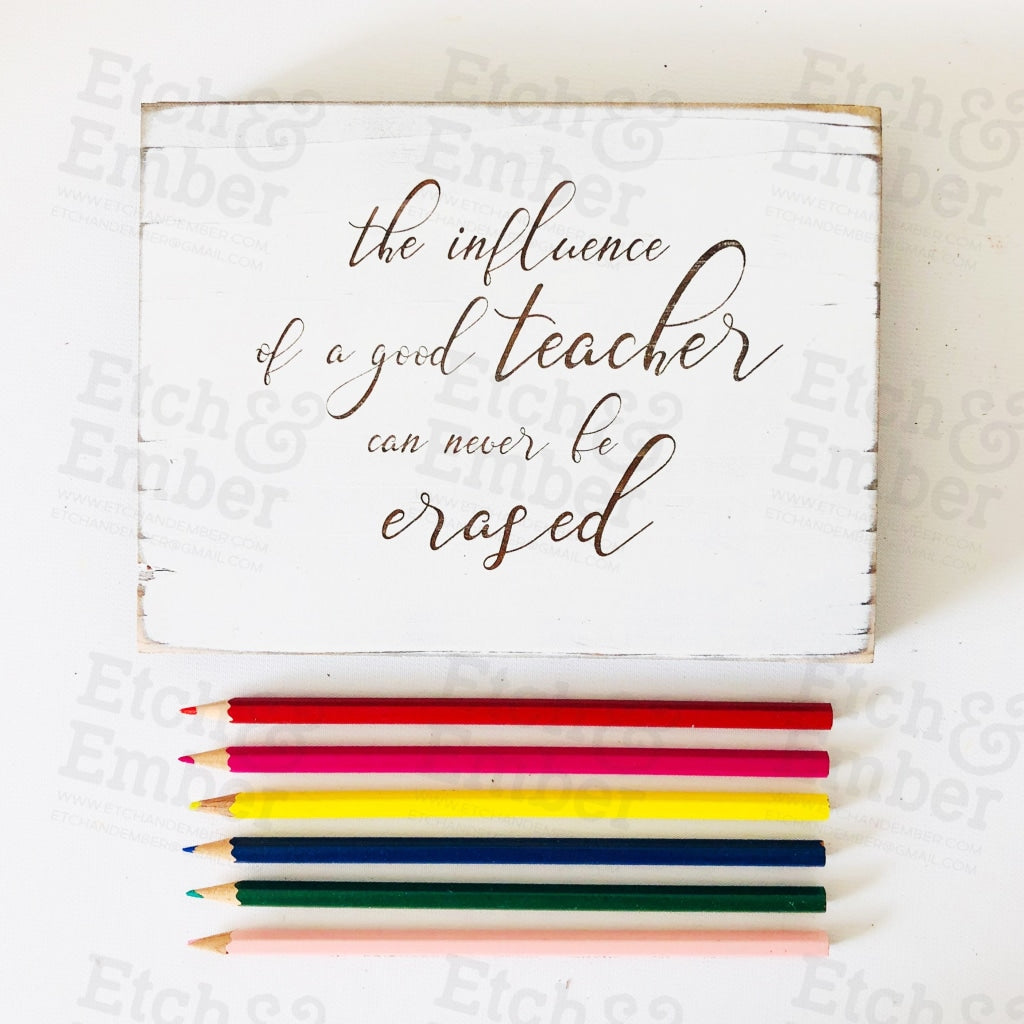 the influence
of a good teacher
can never be
erased
Etch&
Ember
WWW.ETCHANDEMBER.COM
ETCHANDEMBER@GMAIL.COM